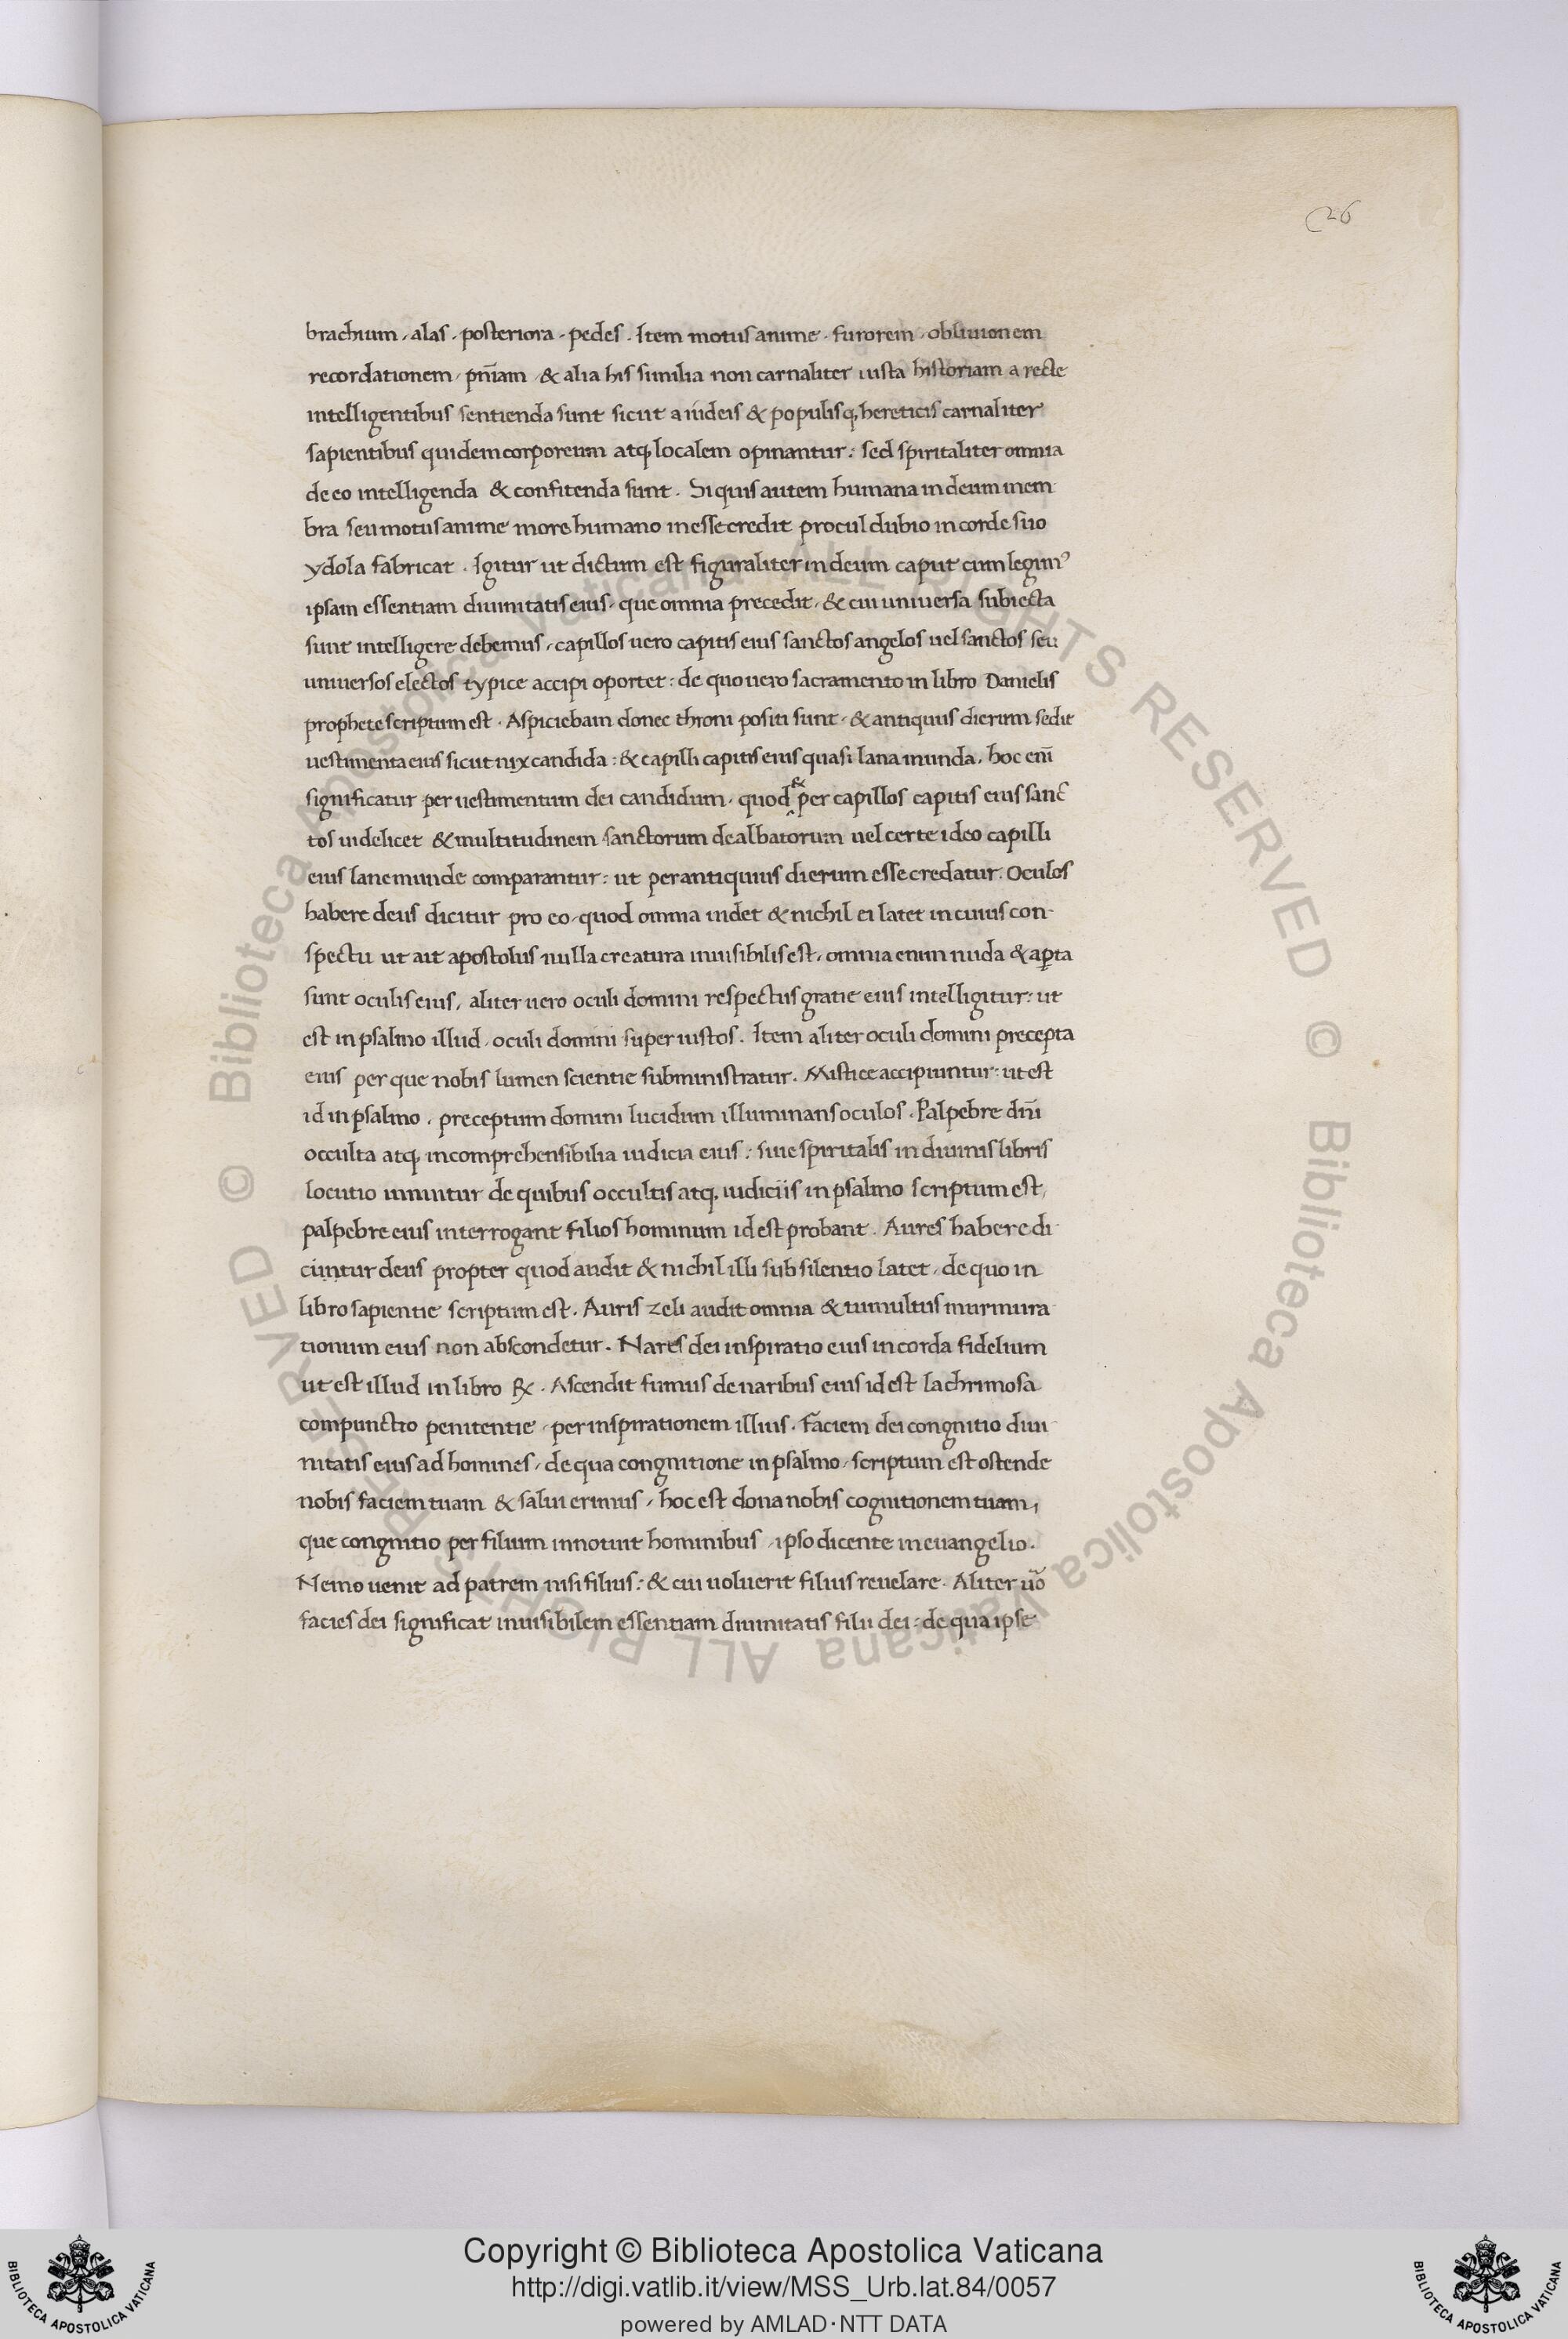 26
brachium, alas, posteriora, pedes. Item motus anime, furorem, obliuionem
recordationem, pn̄iam, & alia his similia non carnaliter iusta historiam a recte
intelligentibus sentienda sunt sicut a iudeis & populisq; hereticis carnaliter
sapientibus quidem corporeum atq; localem opinantur: sed spiritaliter omnia
de eo intelligenda & confitenda sunt. Si quis autem humana in deum mem
bra seu motus anime more humano inesse credit procul dubio in corde suo
ydola fabricat. Igitur ut dictum est figuraliter in deum caput cum legimꝰ
ipsam essentiam diuinitatis eius, que omnia precedit, & cui uniuersa subiecta
sunt intelligere debemus, capillos uero capitis eius sanctos angelos uel sanctos seu
uniuersos electos typice accipi oportet: de quo uero sacramento in libro Danielis
prophete scriptum est. Aspiciebam donec throni positi sunt, & antiquus dierum sedit
uestimenta eius sicut nix candida: & capilli capitis eius quasi lana munda, hoc eni̅
significatur per uestimentum dei candidum, quod & per capillos capitis eius sanc̄
tos uidelicet & multitudinem sanctorum dealbatorum uel certe ideo capilli
eius lane munde comparantur: ut perantiquius dierum esse credatur. Oculos
habere deus dicitur pro eo, quod omnia uidet & nichil ei latet in cuius con-
spectu ut ait apostolus nulla creatura inuisibilis est, omnia enim nuda & aꝑta
sunt oculis eius, aliter uero oculi domini respectus gratie eius intelligitur: ut
est in psalmo illud, oculi domini super iustos. Item aliter oculi domini precepta
eius per que nobis lumen scientie subministratur. Mistice accipiuntur: ut est
id in psalmo, preceptum domini lucidum illuminans oculos. Palpebre dn̄i
occulta atq; incomprehensibilia iudicia eius: siue spiritalis in diuinis libris
locutio innuitur de quibus occultis atq; iudiciis in psalmo scriptum est,
palpebre eius interrogant filios hominum id est probant. Aures habere di
cuntur deus propter quod audit & nichil illi sub silentio latet, de quo in
libro sapientie scriptum est. Auris zeli audit omnia & tumultus murmura-
tionum eius non abscondetur. Nares dei inspiratio eius in corda fidelium
ut est illud in libro ℞. Ascendit fumus de naribus eius id est lachrimosa
compunctio penitentie, per inspirationem illius. Faciem dei congnitio diui-
nitatis eius ad homines, de qua congnitione in psalmo, scriptum est ostende
nobis faciem tuam & salui erimus, hoc est dona nobis cognitionem tuam,
que congnitio per filium innotuit hominibus, ipso dicente in euangelio.
Nemo uenit ad patrem nisi filius: & cui uoluerit filius reuelare. Aliter uō
facies dei significat inuisibilem essentiam diuinitatis filii dei: de qua ipse
© Biblioteca Apostolica Vaticana ALL RIGHTS RESERVED
© Biblioteca Apostolica Vaticana ALL RIGHTS RESERVED
Copyright © Biblioteca Apostolica Vaticana
http://digi.vatlib.it/view/MSS_Urb.lat.84/0057
powered by AMLAD·NTT DATA
BIBLIOTECA APOSTOLICA VATICANA
BIBLIOTECA APOSTOLICA VATICANA